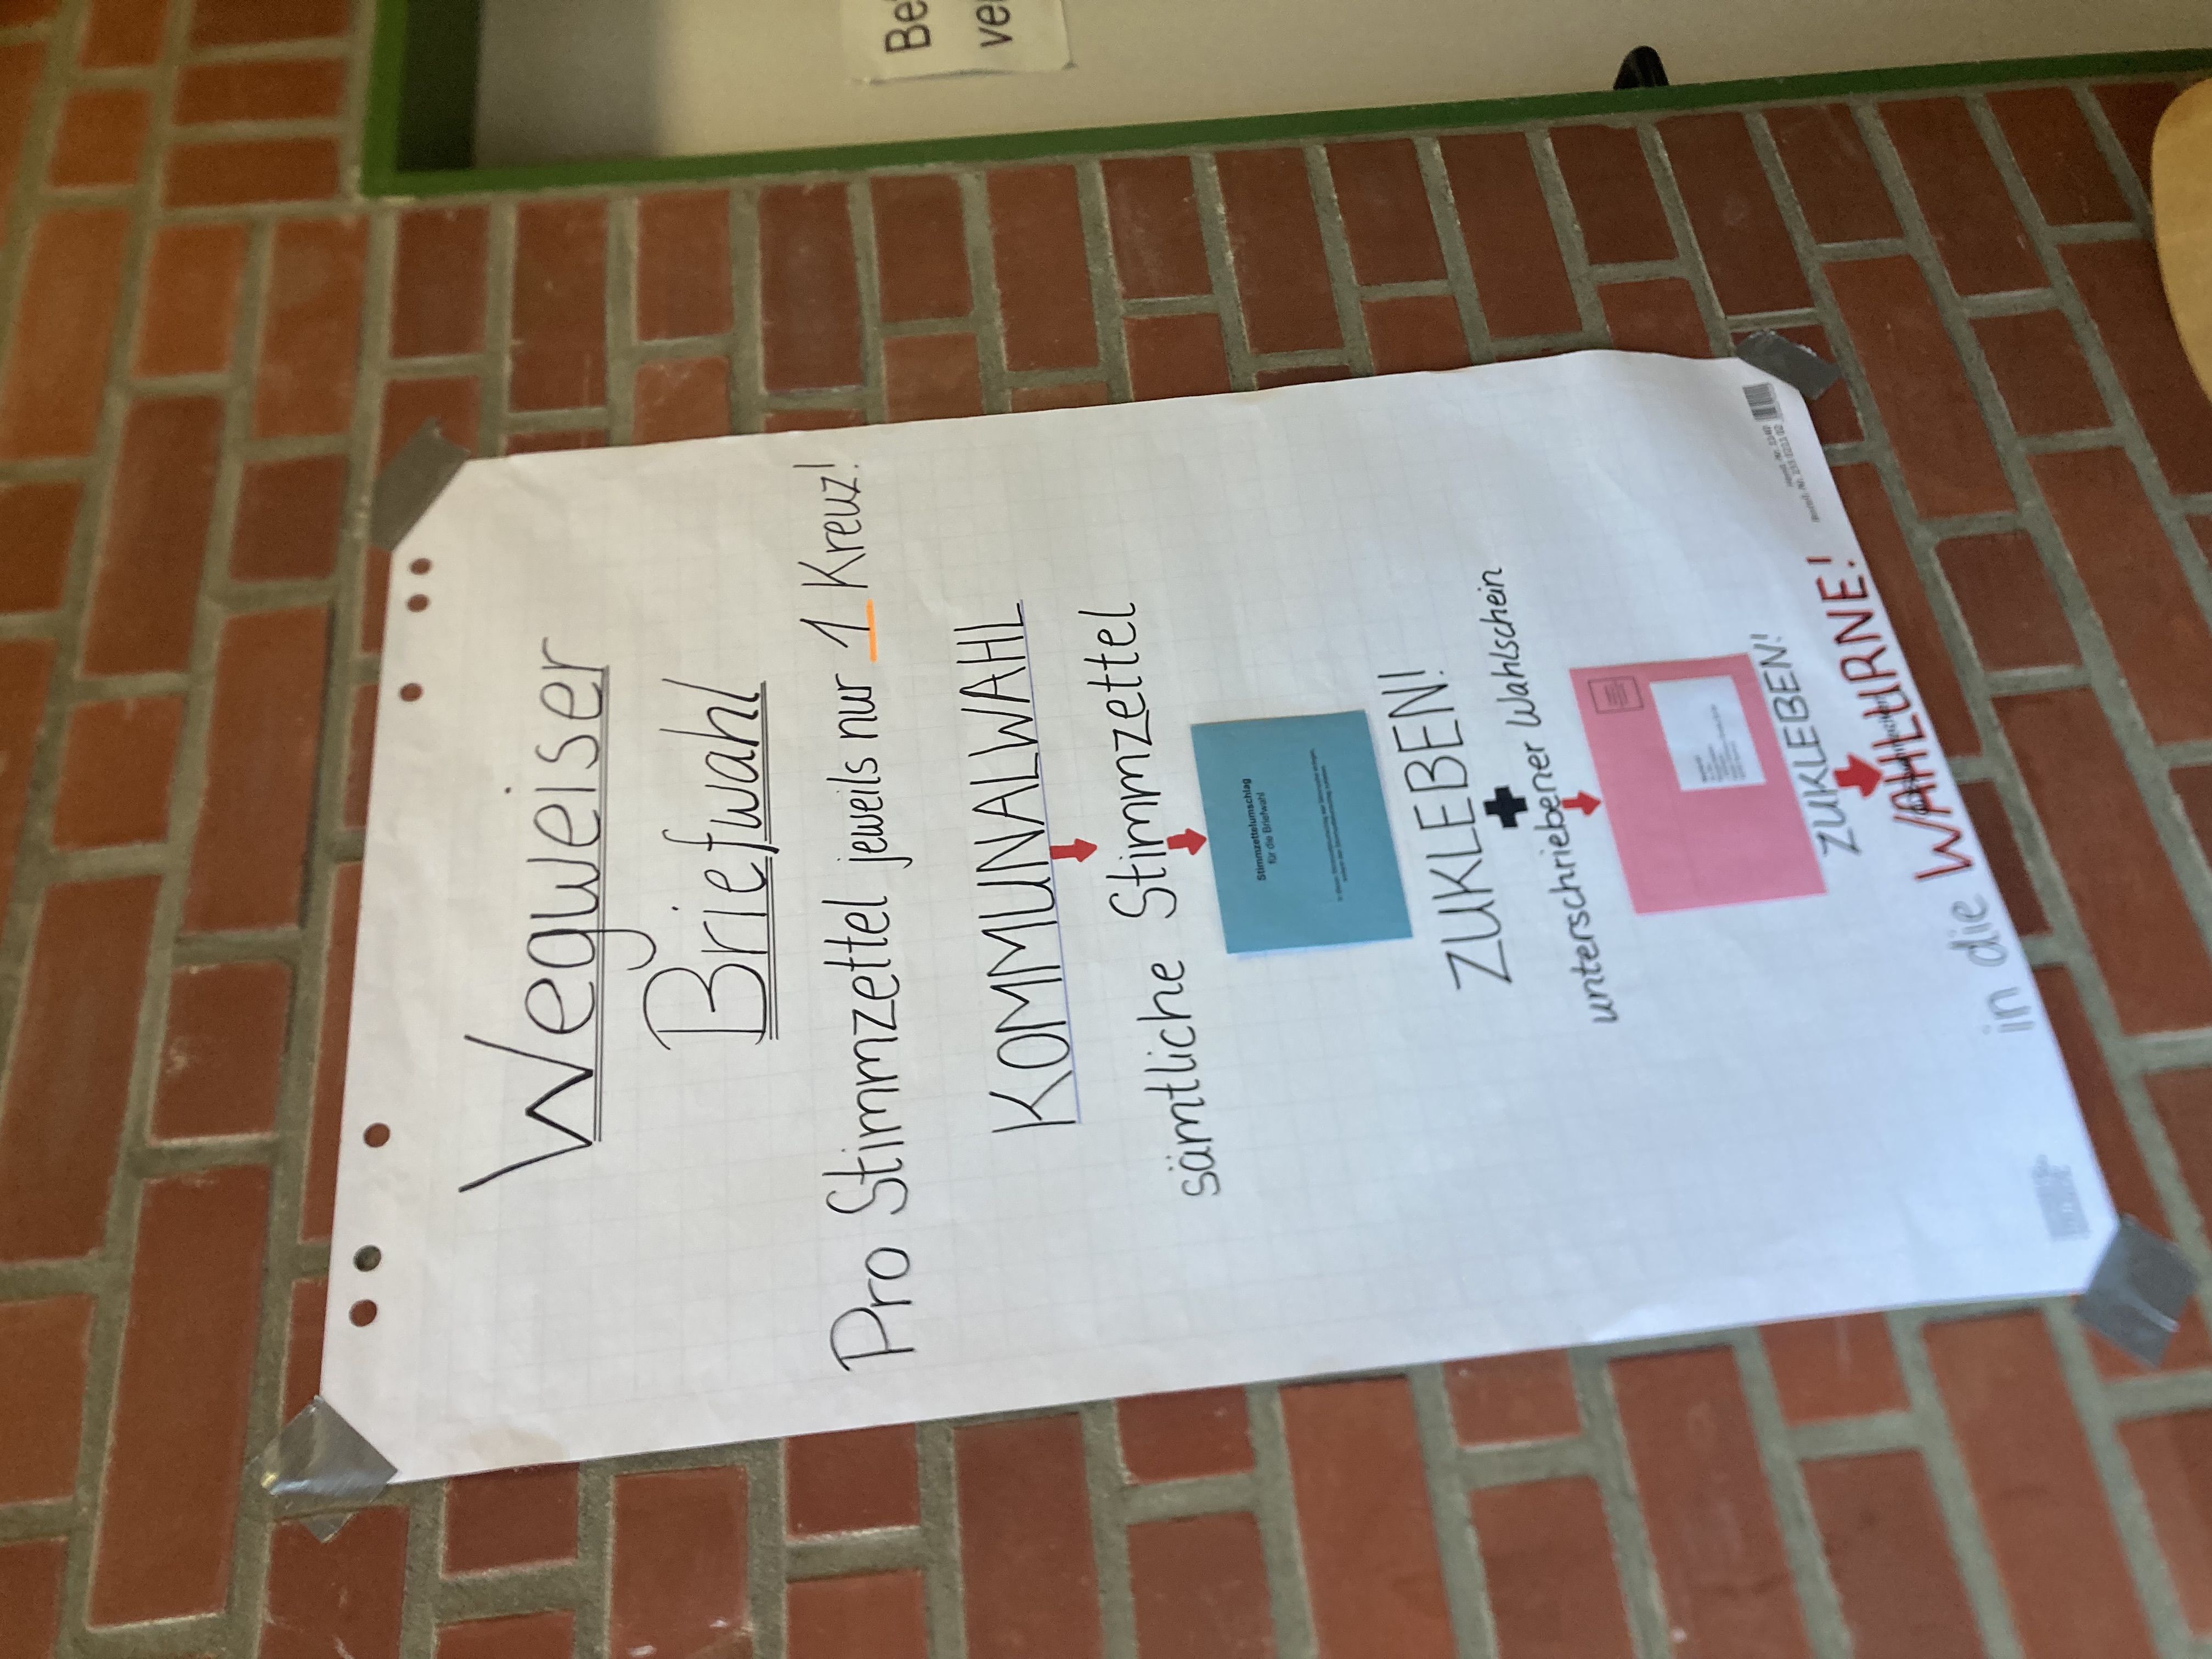 Wegweiser
Briefwahl
Pro Stimmzettel jeweils nur 1 Kreuz!
KOMMUNALWAHL
sämtliche Stimmzettel
Stimmzettelumschlag
für die Briefwahl
ZUKLEBEN!
+
unterschriebener Wahlschein
ZUKLEBEN!
in die WAHLURNE!
Be
ve